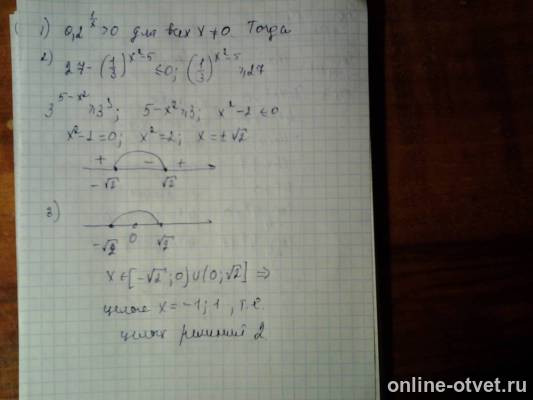 1) 0,2^{1/x} > 0 для всех x ≠ 0. Тогда
2) 27 - (1/3)^{x²-5} ≤ 0; (1/3)^{x²-5} ≥ 27
3^{5-x²} ≥ 3³; 5-x² ≥ 3; x²-2 ≤ 0
x²-2=0; x²=2; x=±√2
+ - +
-√2 √2
3)
-√2 0 √2
x ∈ [-√2; 0) ∪ (0; √2] ⇒
целые x = -1; 1, т.е.
целых решений 2
online-otvet.ru